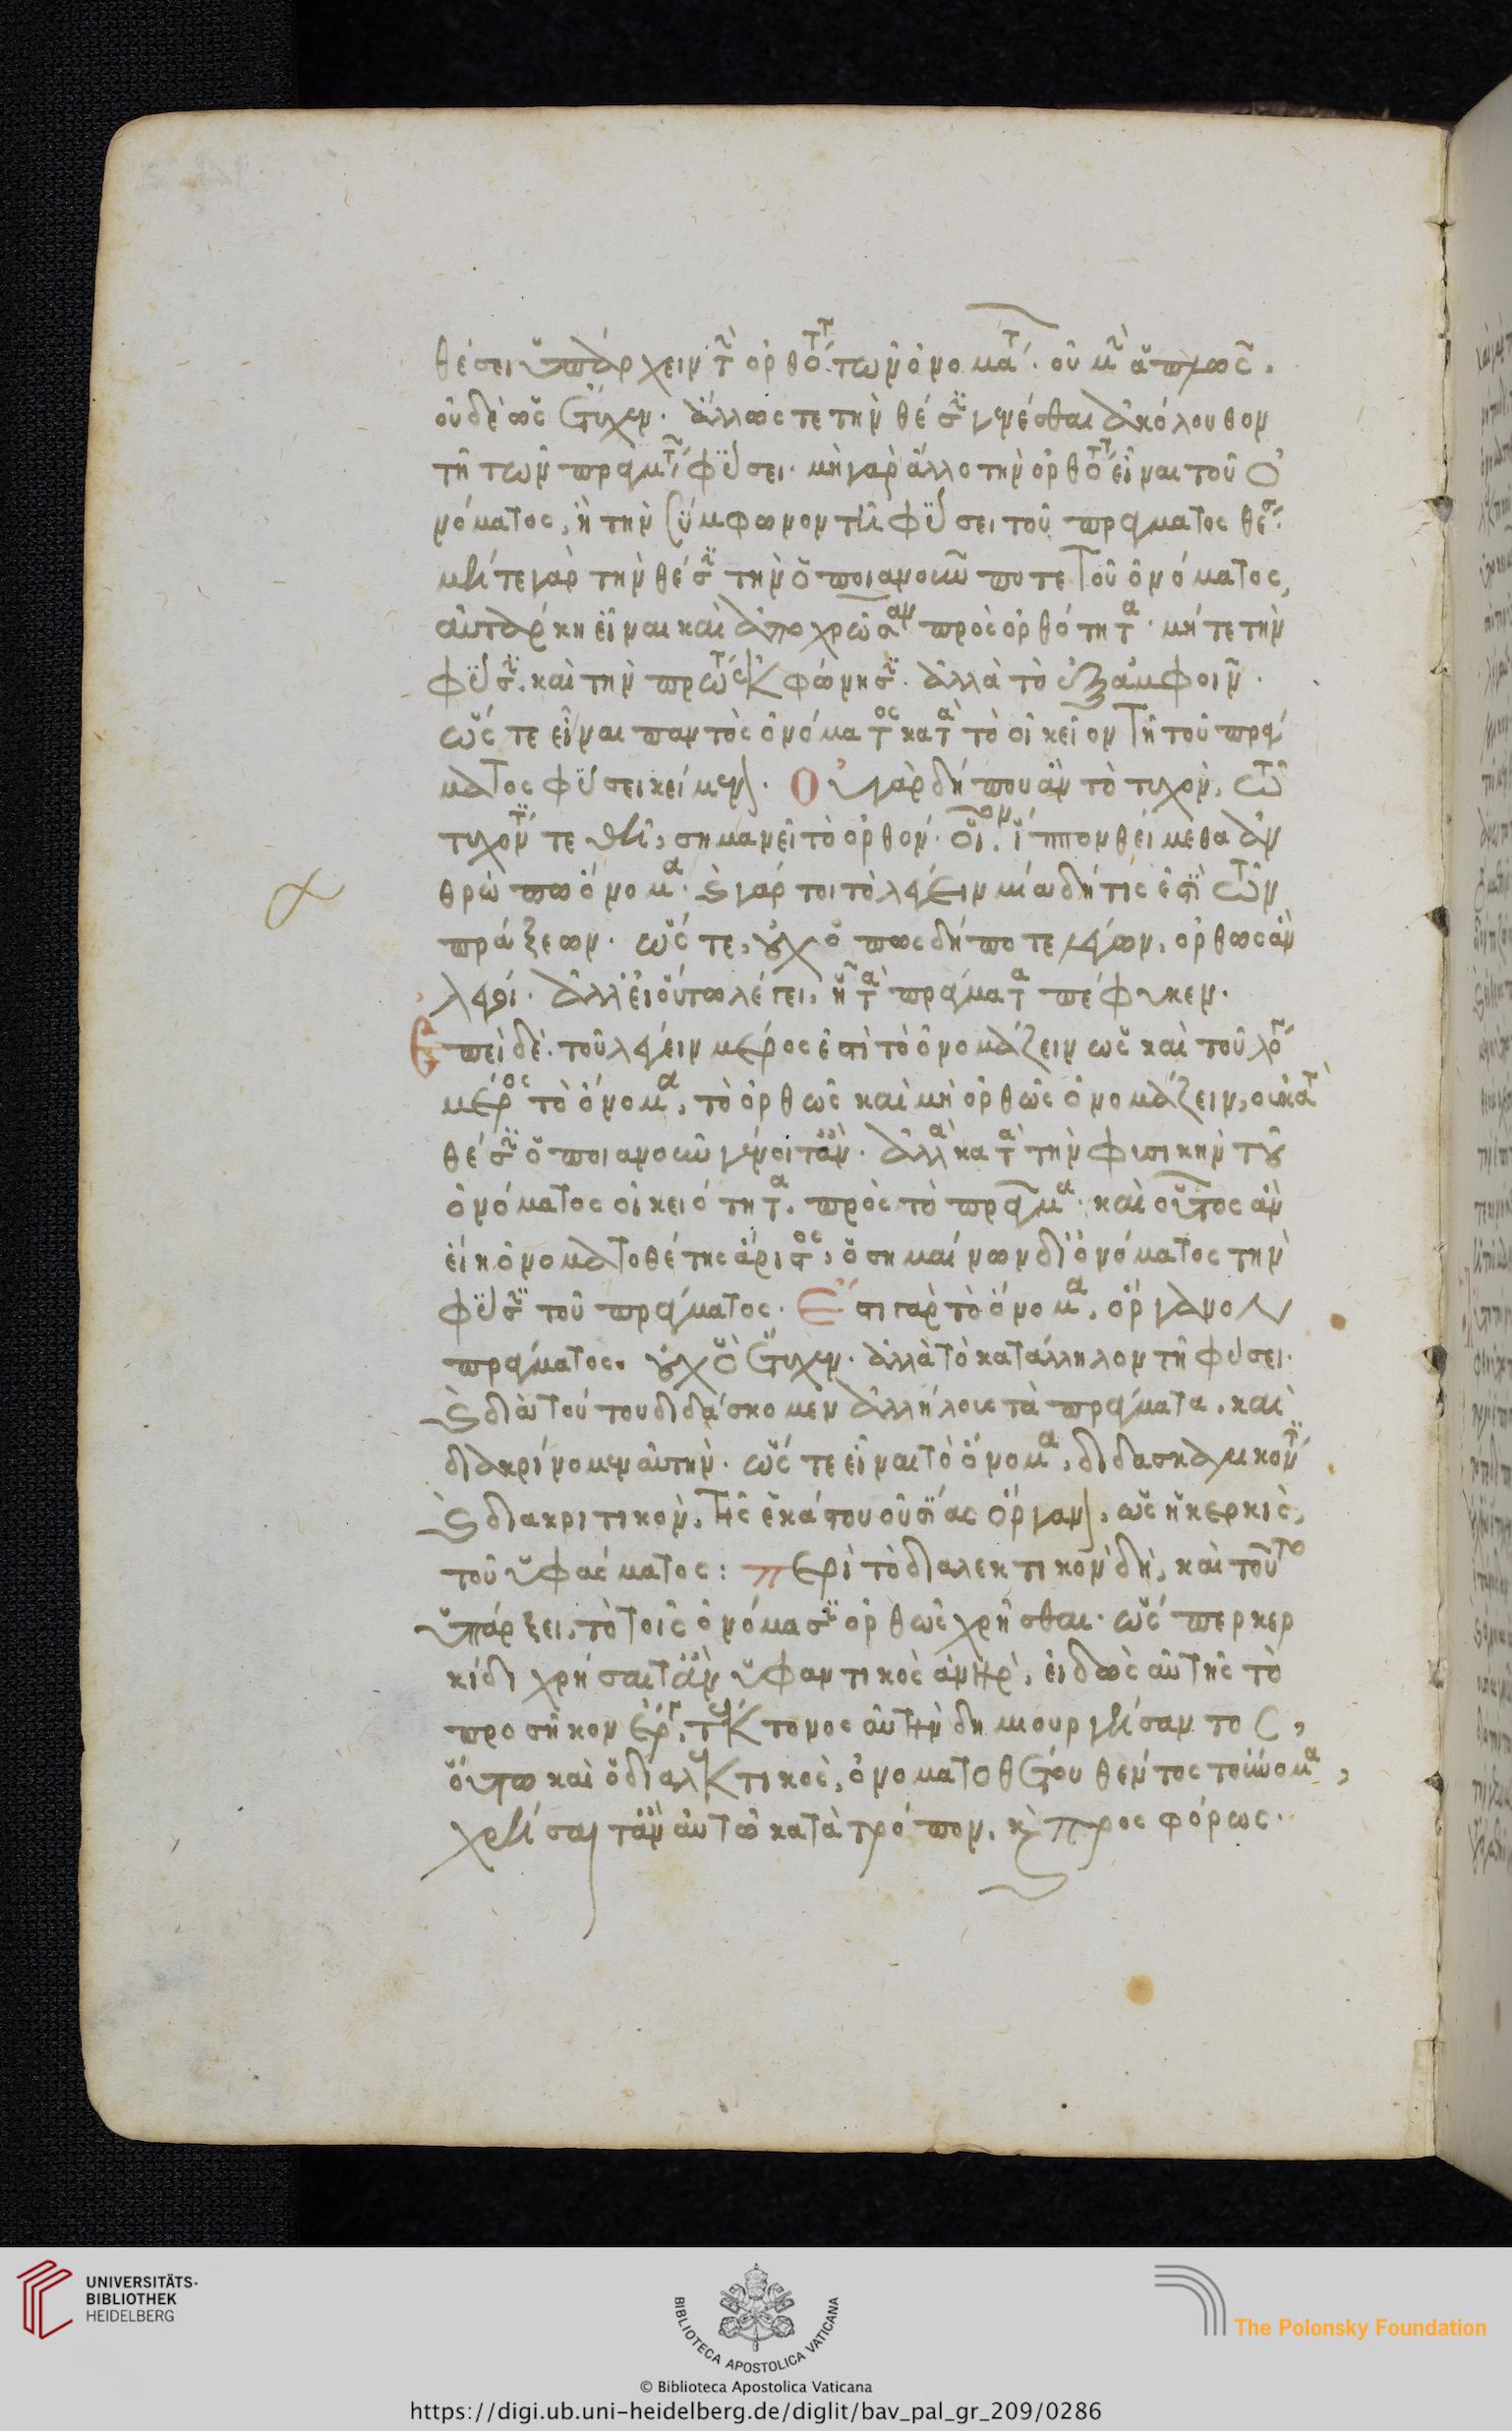 θέσει ὑπάρχειν τὴν ὀρθότητα τῶν ὀνομάτων. οὐ μὴν ἁπλῶς.
οὐδὲ ὡς ἔτυχεν. ἄλλως τε τὴν θέσιν γενέσθαι ἀκόλουθον
τῇ τῶν πραγμάτων φύσει. μὴ γὰρ ἄλλο τὴν ὀρθότητα εἶναι τοῦ ὀ
νόματος, ἢ τὴν σύμφωνον τῇ φύσει τοῦ πράγματος θέσιν.
μήτε γὰρ τὴν θέσιν τὴν ὁποιανοῦν ποτε τοῦ ὀνόματος,
αὐτάρκη εἶναι καὶ ἀποχρῶσαν πρὸς ὀρθότητα. μήτε τὴν
φύσιν. καὶ τὴν πρώτην ἐκφώνησιν. ἀλλὰ τὸ ἐξ ἀμφοῖν.
ὥς τε εἶναι παντὸς ὀνόματος κατὰ τὸ οἰκεῖον τῇ τοῦ πράγ
ματος φύσει κείμενον. Οὐ γὰρ δήπου ἂν τὸ τυχὸν, τῷ
τυχόντι τεθῇ, σημανεῖ τὸ ὀρθόν. οἷον. ἵππον θείμεθα ἀν
θρώπω ὄνομα. καὶ γάρ τοι τὸ λέγειν μία δή τίς ἐστὶ τῶν
πράξεων. ὥς τε, οὐχ ὁ πως δήποτε λέγων, ὀρθῶς ἂν
λέγοι. ἀλλ' εἰ οὕτω λέγει, ᾗ τὰ πράγματα πέφυκεν.
Επεὶ δὲ. τοῦ λέγειν μέρος ἐστὶ τὸ ὀνομάζειν ὡς καὶ τοῦ λόγου
μέρος τὸ ὄνομα, τὸ ὀρθῶς καὶ μὴ ὀρθῶς ὀνομάζειν, οὐ κατὰ
θέσιν ὁποιανοῦν γένοιτ' ἂν. ἀλλὰ κατὰ τὴν φυσικὴν τοῦ
ὀνόματος οἰκειότητα. πρὸς τὸ πρᾶγμα. καὶ οὗτος ἂν
εἴη ὀνοματοθέτης ἄριστος, ὁ σημαίνων δι' ὀνόματος τὴν
φύσιν τοῦ πράγματος. Ἔστι γὰρ τὸ ὄνομα, ὄργανον
πράγματος. οὐχ ὃ ἔτυχεν. ἀλλὰ τὸ κατάλληλον τῇ φύσει.
καὶ διὰ τούτου διδάσκομεν ἀλλήλοις τὰ πράγματα. καὶ
διακρίνομεν αὐτήν. ὥς τε εἶναι τὸ ὄνομα, διδασκαλικόν τι
καὶ διακριτικὸν, τῆς ἑκάστου οὐσίας ὄργανον, ὡς ἡ κερκὶς,
τοῦ ὑφάσματος: περὶ τὸ διαλεκτικὸν δὴ, καὶ τοῦτο
ὑπάρξει, τὸ τοῖς ὀνόμασιν ὀρθῶς χρῆσθαι. ὥς περ κερ
κίδι χρήσαιτ' ἂν ὑφαντικὸς ἀνὴρ, εἰδὼς αὐτῆς τὸ
προσῆκον ἔργον, τέκτονος αὐτὴν δημιουργήσαντος,
οὕτω καὶ ὁ διαλεκτικὸς, ὀνοματοθέτου θεντος τοὔνομα,
χρήσαιτ' ἂν αὐτῷ κατὰ τρόπον. καὶ προσφόρως.
UNIVERSITÄTS-
BIBLIOTHEK
HEIDELBERG
BIBLIOTECA APOSTOLICA VATICANA
© Biblioteca Apostolica Vaticana
The Polonsky Foundation
https://digi.ub.uni-heidelberg.de/diglit/bav_pal_gr_209/0286